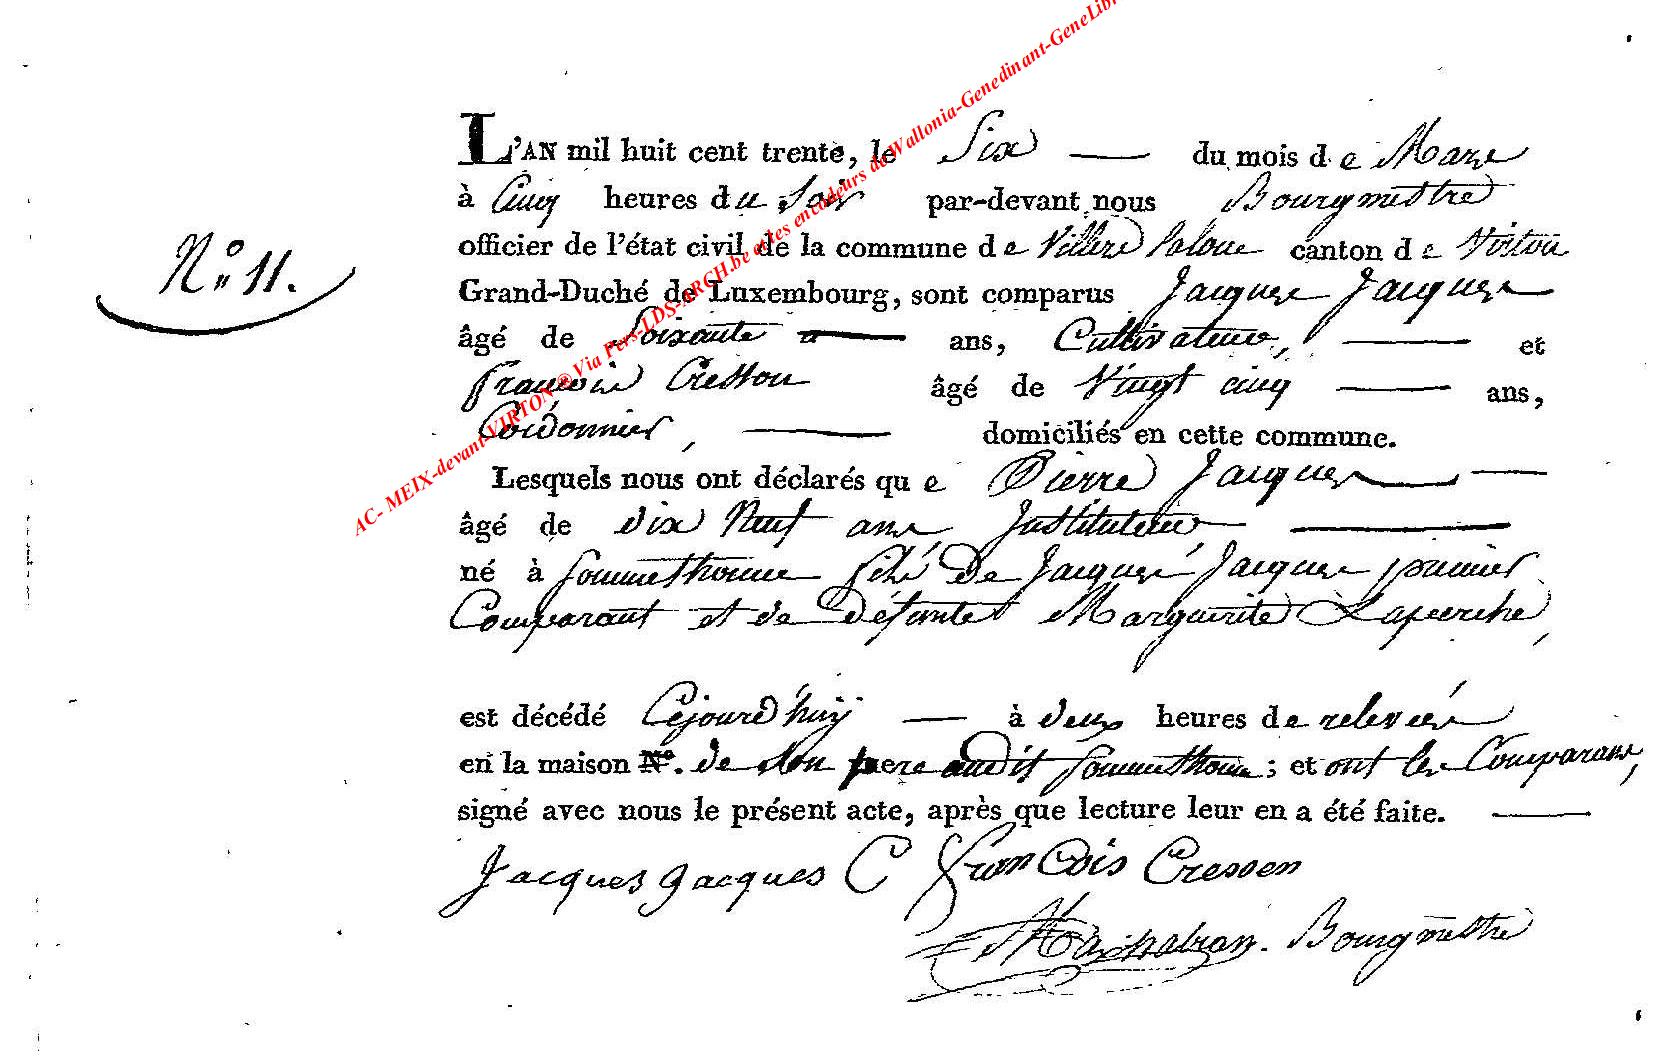 L'AN mil huit cent trente, le Six du mois de Mars
à Cinq heures du Soir par-devant nous Bourgmestre
officier de l'état civil de la commune de Villers laloue canton de Virton
N° 11.
Grand-Duché de Luxembourg, sont comparus Jacques Jacques
âgé de Soixante ans, Cultivateur, et
françois Cresson âgé de Vingt cinq ans,
Cordonnier, domiciliés en cette commune.
Lesquels nous ont déclarés que Pierre Jacques
âgé de dix Neuf ans Instituteur
né à Sommethonne fils de Jacques Jacques premier
Comparant et de défunte Marguerite Laperche,
est décédé Cejourd'huy à deux heures de relevée
en la maison N°. de son pere audit Sommethonne; et ont les Comparans,
signé avec nous le présent acte, après que lecture leur en a été faite.
Jacques Jacques C françois Cresson
Bourgmestre
AC- MEIX-devant-VIRTON ® Via Pers-LDS-ARCH.be et les encodeurs de Wallonia-Genedinant-GeneLib